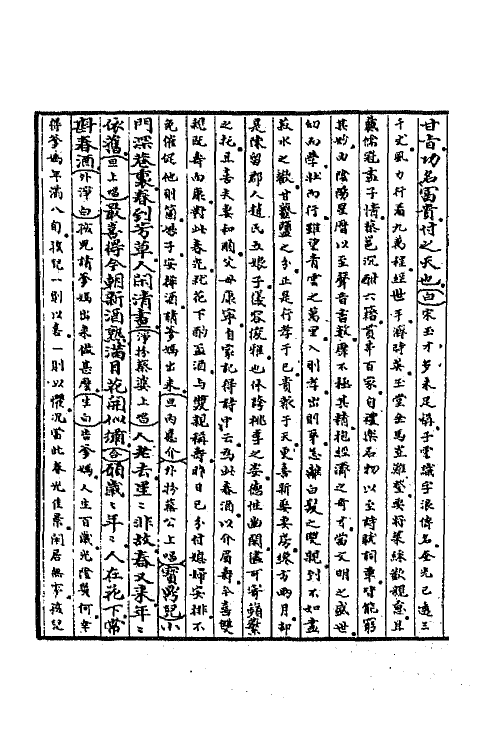 甘旨功名富貴付之天也白宋玉才多未足稱子雲識字浪傳名奎光已透三
千丈風力行看九萬程經世手濟時英玉堂金馬豈難登要將萊綵歡親意且
戴儒冠盡子情蔡邕沉酣六籍貫串百家自禮樂名物以至詩賦詞章皆能窮
其妙由陰陽星曆以至聲音書數靡不極其精抱經濟之奇才當文明之盛世
幼而學壯而行雖望青雲之萬里入則孝出則弟怎離白髮之雙親到不如盡
菽水之歡甘虀鹽之分正是行孝于己責報于天更喜新娶妻房纔方兩月却
是陳留郡人趙氏五娘子儀容俊雅也休誇桃李之姿德性幽閒儘可寄蘋蘩
之托且喜夫妻和順父母康寧自家記得詩中云為此春酒以介眉壽今喜雙
親既壽而康對此春光就花下酌盃酒與雙親稱壽昨日已分付媳婦安排不
免催促他則箇娘子安排酒請爹媽出來旦内應介外扮蔡公上唱寶鼎兒小
門深巷裏春到芳草人閒清晝淨扮蔡婆上唱人老去星〻非故春又來年〻
依舊旦上唱最喜得今朝新酒熟滿目花開似繡合願歲〻年〻人在花下常
斟春酒外淨白孩兒請爹媽出來做甚麼生白告爹媽人生百歲光陰幾何幸
得爹媽年滿八旬孩兒一則以喜一則以懼況當此春光佳景閒居無事孩兒